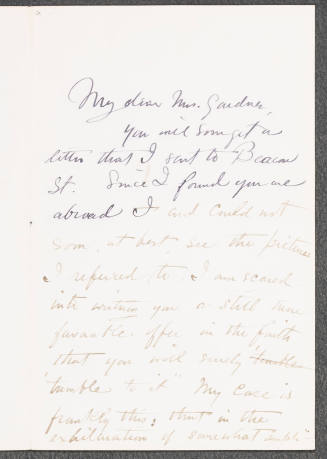 My dear Mrs. Gardner,
You will soon get a
letter that I sent to Beacon
St. Since I found you are
abroad I and could not
soon, at best, see the pictures
I referred to, I am scared
into writing you a still more
favorable offer in the faith
that you will surely "tumble
tumble to it" My case is
frankly this; that in the
exhilaration of somewhat